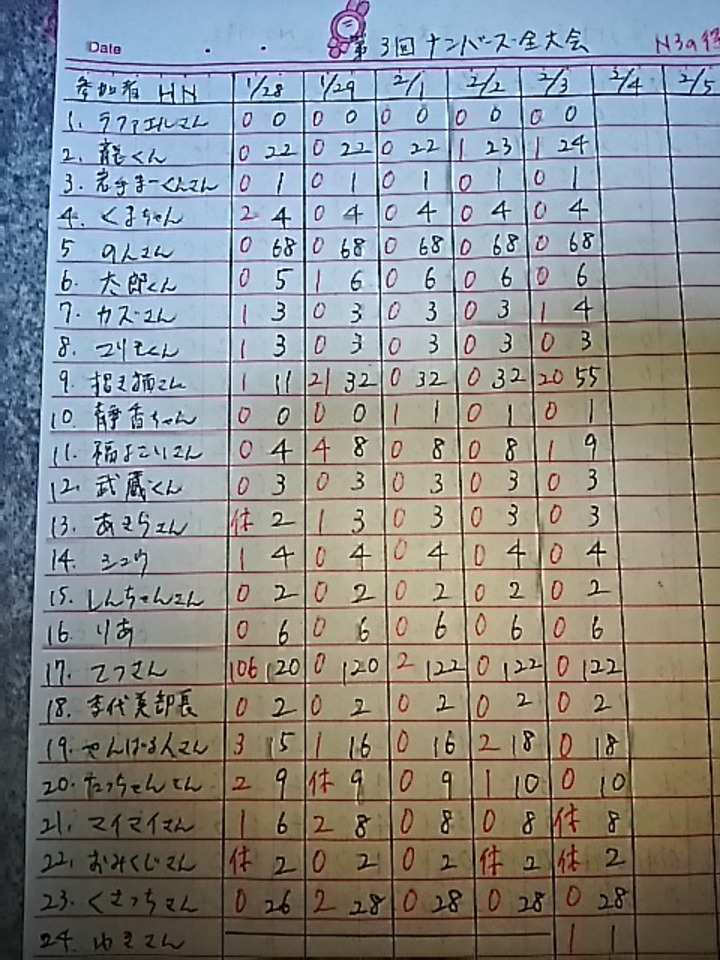 Date ・ ・ 第3回ナンバーズ全大会 N3a
参加者 HN 1/28 1/29 2/1 2/2 2/3 2/4 2/5
1. ラファエルさん 0 0 0 0 0 0 0 0 0 0
2. 龍くん 0 22 0 22 0 22 1 23 1 24
3. 岩手まーくんさん 0 1 0 1 0 1 0 1 0 1
4. くまちゃん 2 4 0 4 0 4 0 4 0 4
5 のんさん 0 68 0 68 0 68 0 68 0 68
6. 太郎くん 0 5 1 6 0 6 0 6 0 6
7. カズさん 1 3 0 3 0 3 0 3 1 4
8. コリくん 1 3 0 3 0 3 0 3 0 3
9. 招き猫さん 1 11 21 32 0 32 0 32 20 55
10. 静香ちゃん 0 0 0 0 1 1 0 1 0 1
11. 福よこいさん 0 4 4 8 0 8 0 8 1 9
12. 武蔵くん 0 3 0 3 0 3 0 3 0 3
13. あきらさん 休 2 1 3 0 3 0 3 0 3
14. シュウ 1 4 0 4 0 4 0 4 0 4
15. しんちゃんさん 0 2 0 2 0 2 0 2 0 2
16. りあ 0 6 0 6 0 6 0 6 0 6
17. てつさん 106 120 0 120 2 122 0 122 0 122
18. 李代美部長 0 2 0 2 0 2 0 2 0 2
19. やんばる人さん 3 15 1 16 0 16 2 18 0 18
20. たっちゃんさん 2 9 休 9 0 9 1 10 0 10
21. マイマイさん 1 6 2 8 0 8 0 8 休 8
22. おみくじさん 休 2 0 2 0 2 休 2 休 2
23. くさっちさん 0 26 2 28 0 28 0 28 0 28
24. ゆきさん 1 1